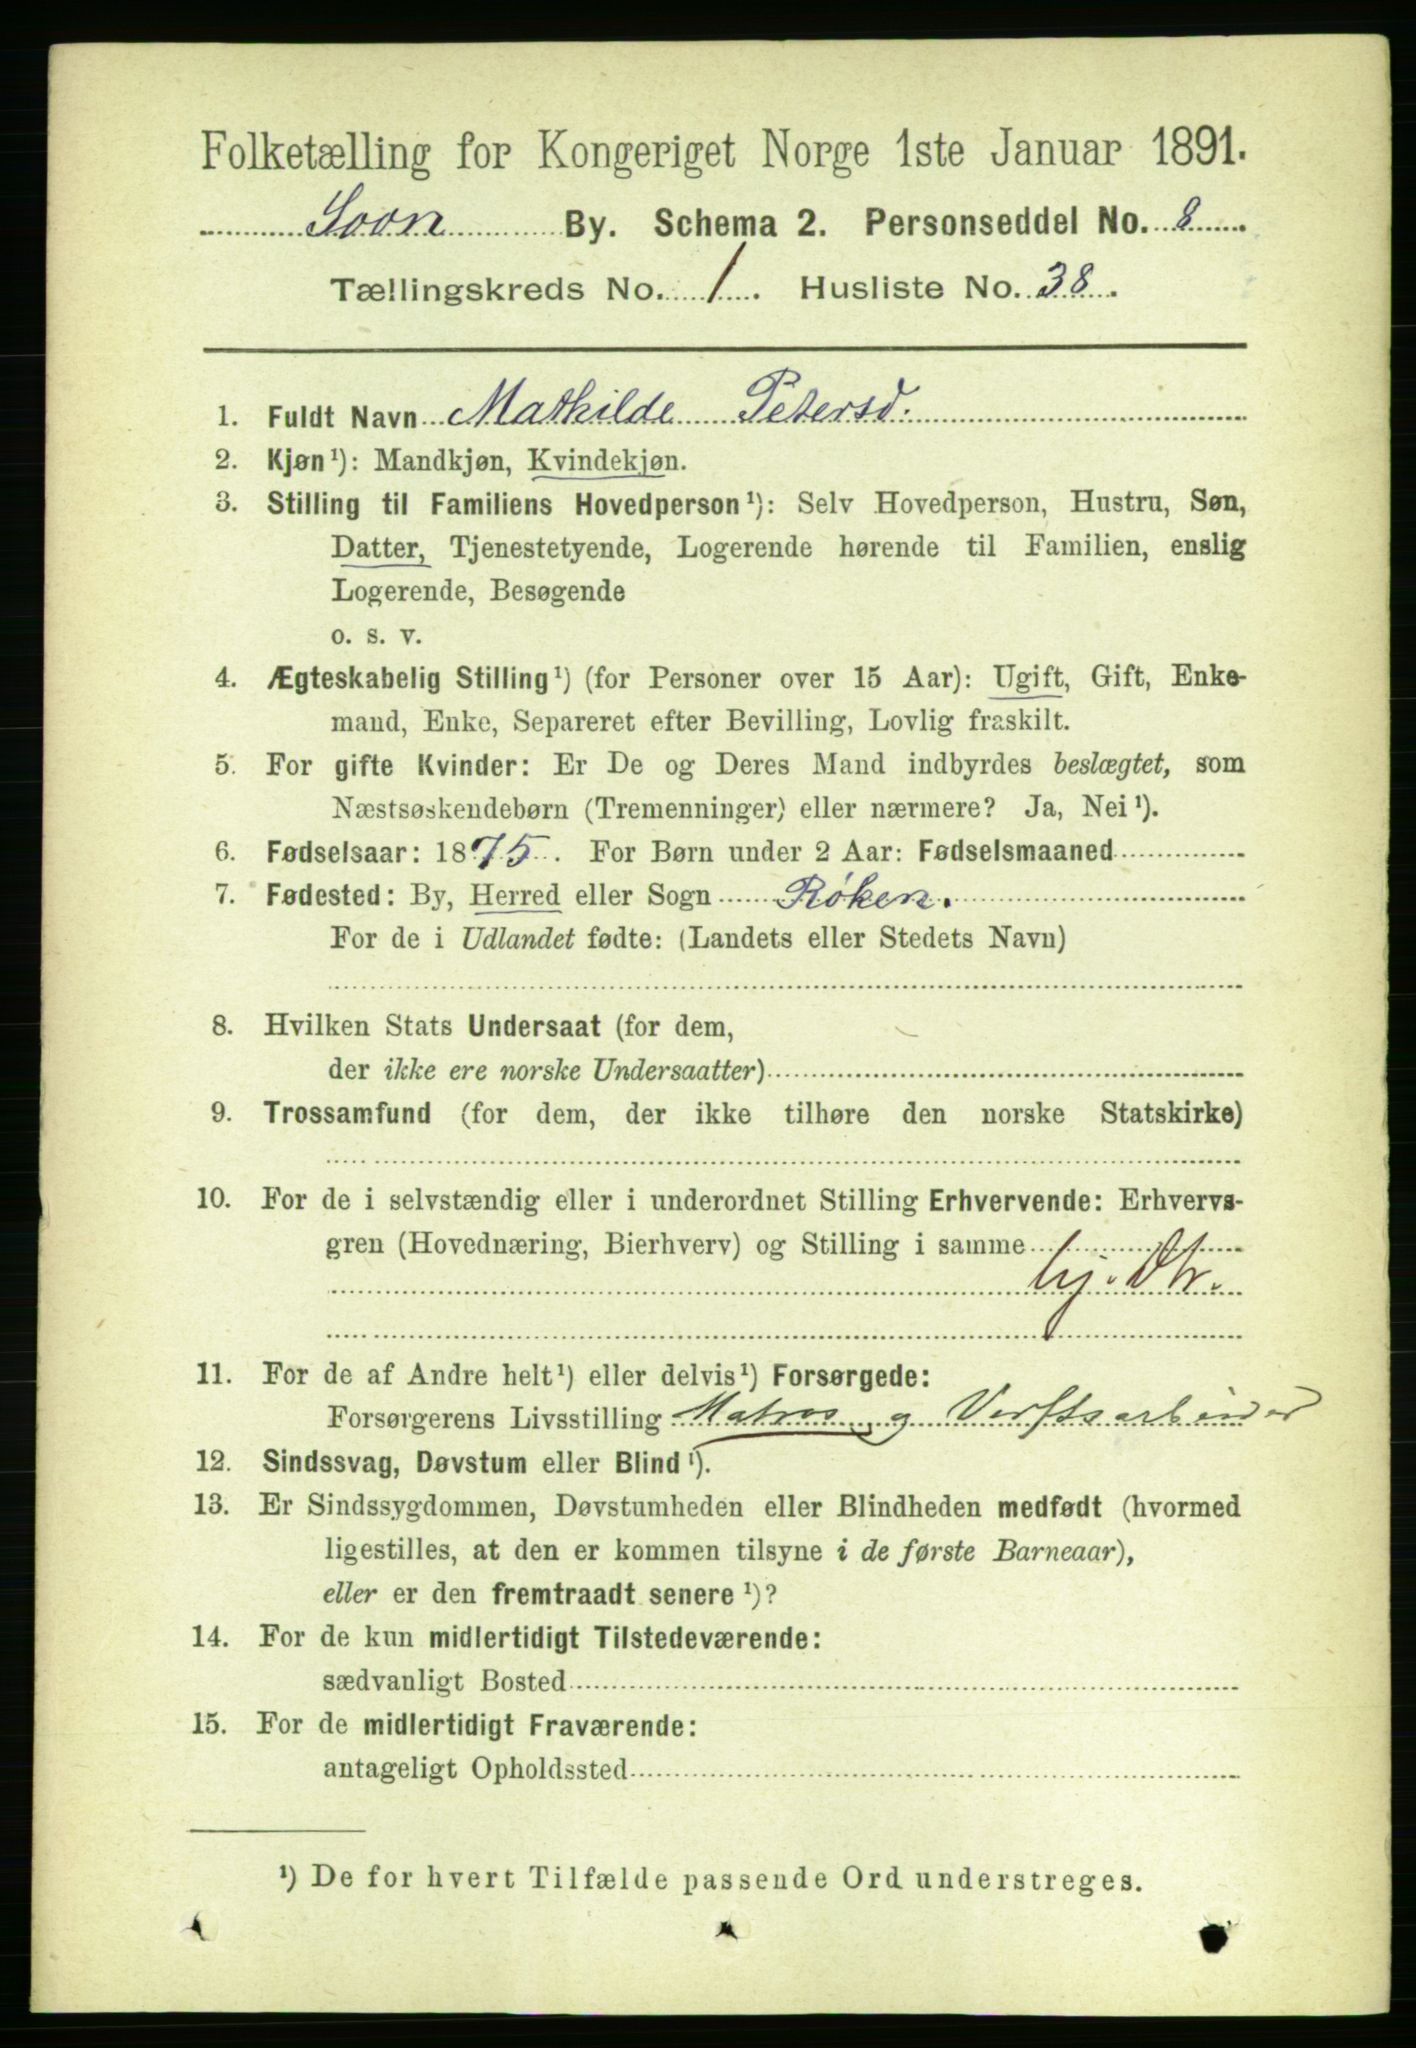 Folketælling for Kongeriget Norge 1ste Januar 1891.
Soon By. Schema 2. Personseddel No. 8.
Tællingskreds No. 1. Husliste No. 38.
1. Fuldt Navn Mathilde Petersd.
2. Kjøn¹): Mandkjøn, Kvindekjøn.
3. Stilling til Familiens Hovedperson¹): Selv Hovedperson, Hustru, Søn,
Datter, Tjenestetyende, Logerende hørende til Familien, enslig
Logerende, Besøgende
o. s. v.
4. Ægteskabelig Stilling¹) (for Personer over 15 Aar): Ugift, Gift, Enke-
mand, Enke, Separeret efter Bevilling, Lovlig fraskilt.
5. For gifte Kvinder: Er De og Deres Mand indbyrdes beslægtet, som
Næstsøskendebørn (Tremenninger) eller nærmere? Ja, Nei¹).
6. Fødselsaar: 1875. For Børn under 2 Aar: Fødselsmaaned
7. Fødested: By, Herred eller Sogn Røken.
For de i Udlandet fødte: (Landets eller Stedets Navn)
8. Hvilken Stats Undersaat (for dem,
der ikke ere norske Undersaatter)
9. Trossamfund (for dem, der ikke tilhøre den norske Statskirke)
10. For de i selvstændig eller i underordnet Stilling Erhvervende: Erhvervs-
gren (Hovednæring, Bierhverv) og Stilling i samme
hj. Dtr.
11. For de af Andre helt¹) eller delvis¹) Forsørgede:
Forsørgerens Livsstilling Matros og Verftsarbeider
12. Sindssvag, Døvstum eller Blind¹).
13. Er Sindssygdommen, Døvstumheden eller Blindheden medfødt (hvormed
ligestilles, at den er kommen tilsyne i de første Barneaar),
eller er den fremtraadt senere¹)?
14. For de kun midlertidigt Tilstedeværende:
sædvanligt Bosted
15. For de midlertidigt Fraværende:
antageligt Opholdssted
¹) De for hvert Tilfælde passende Ord understreges.